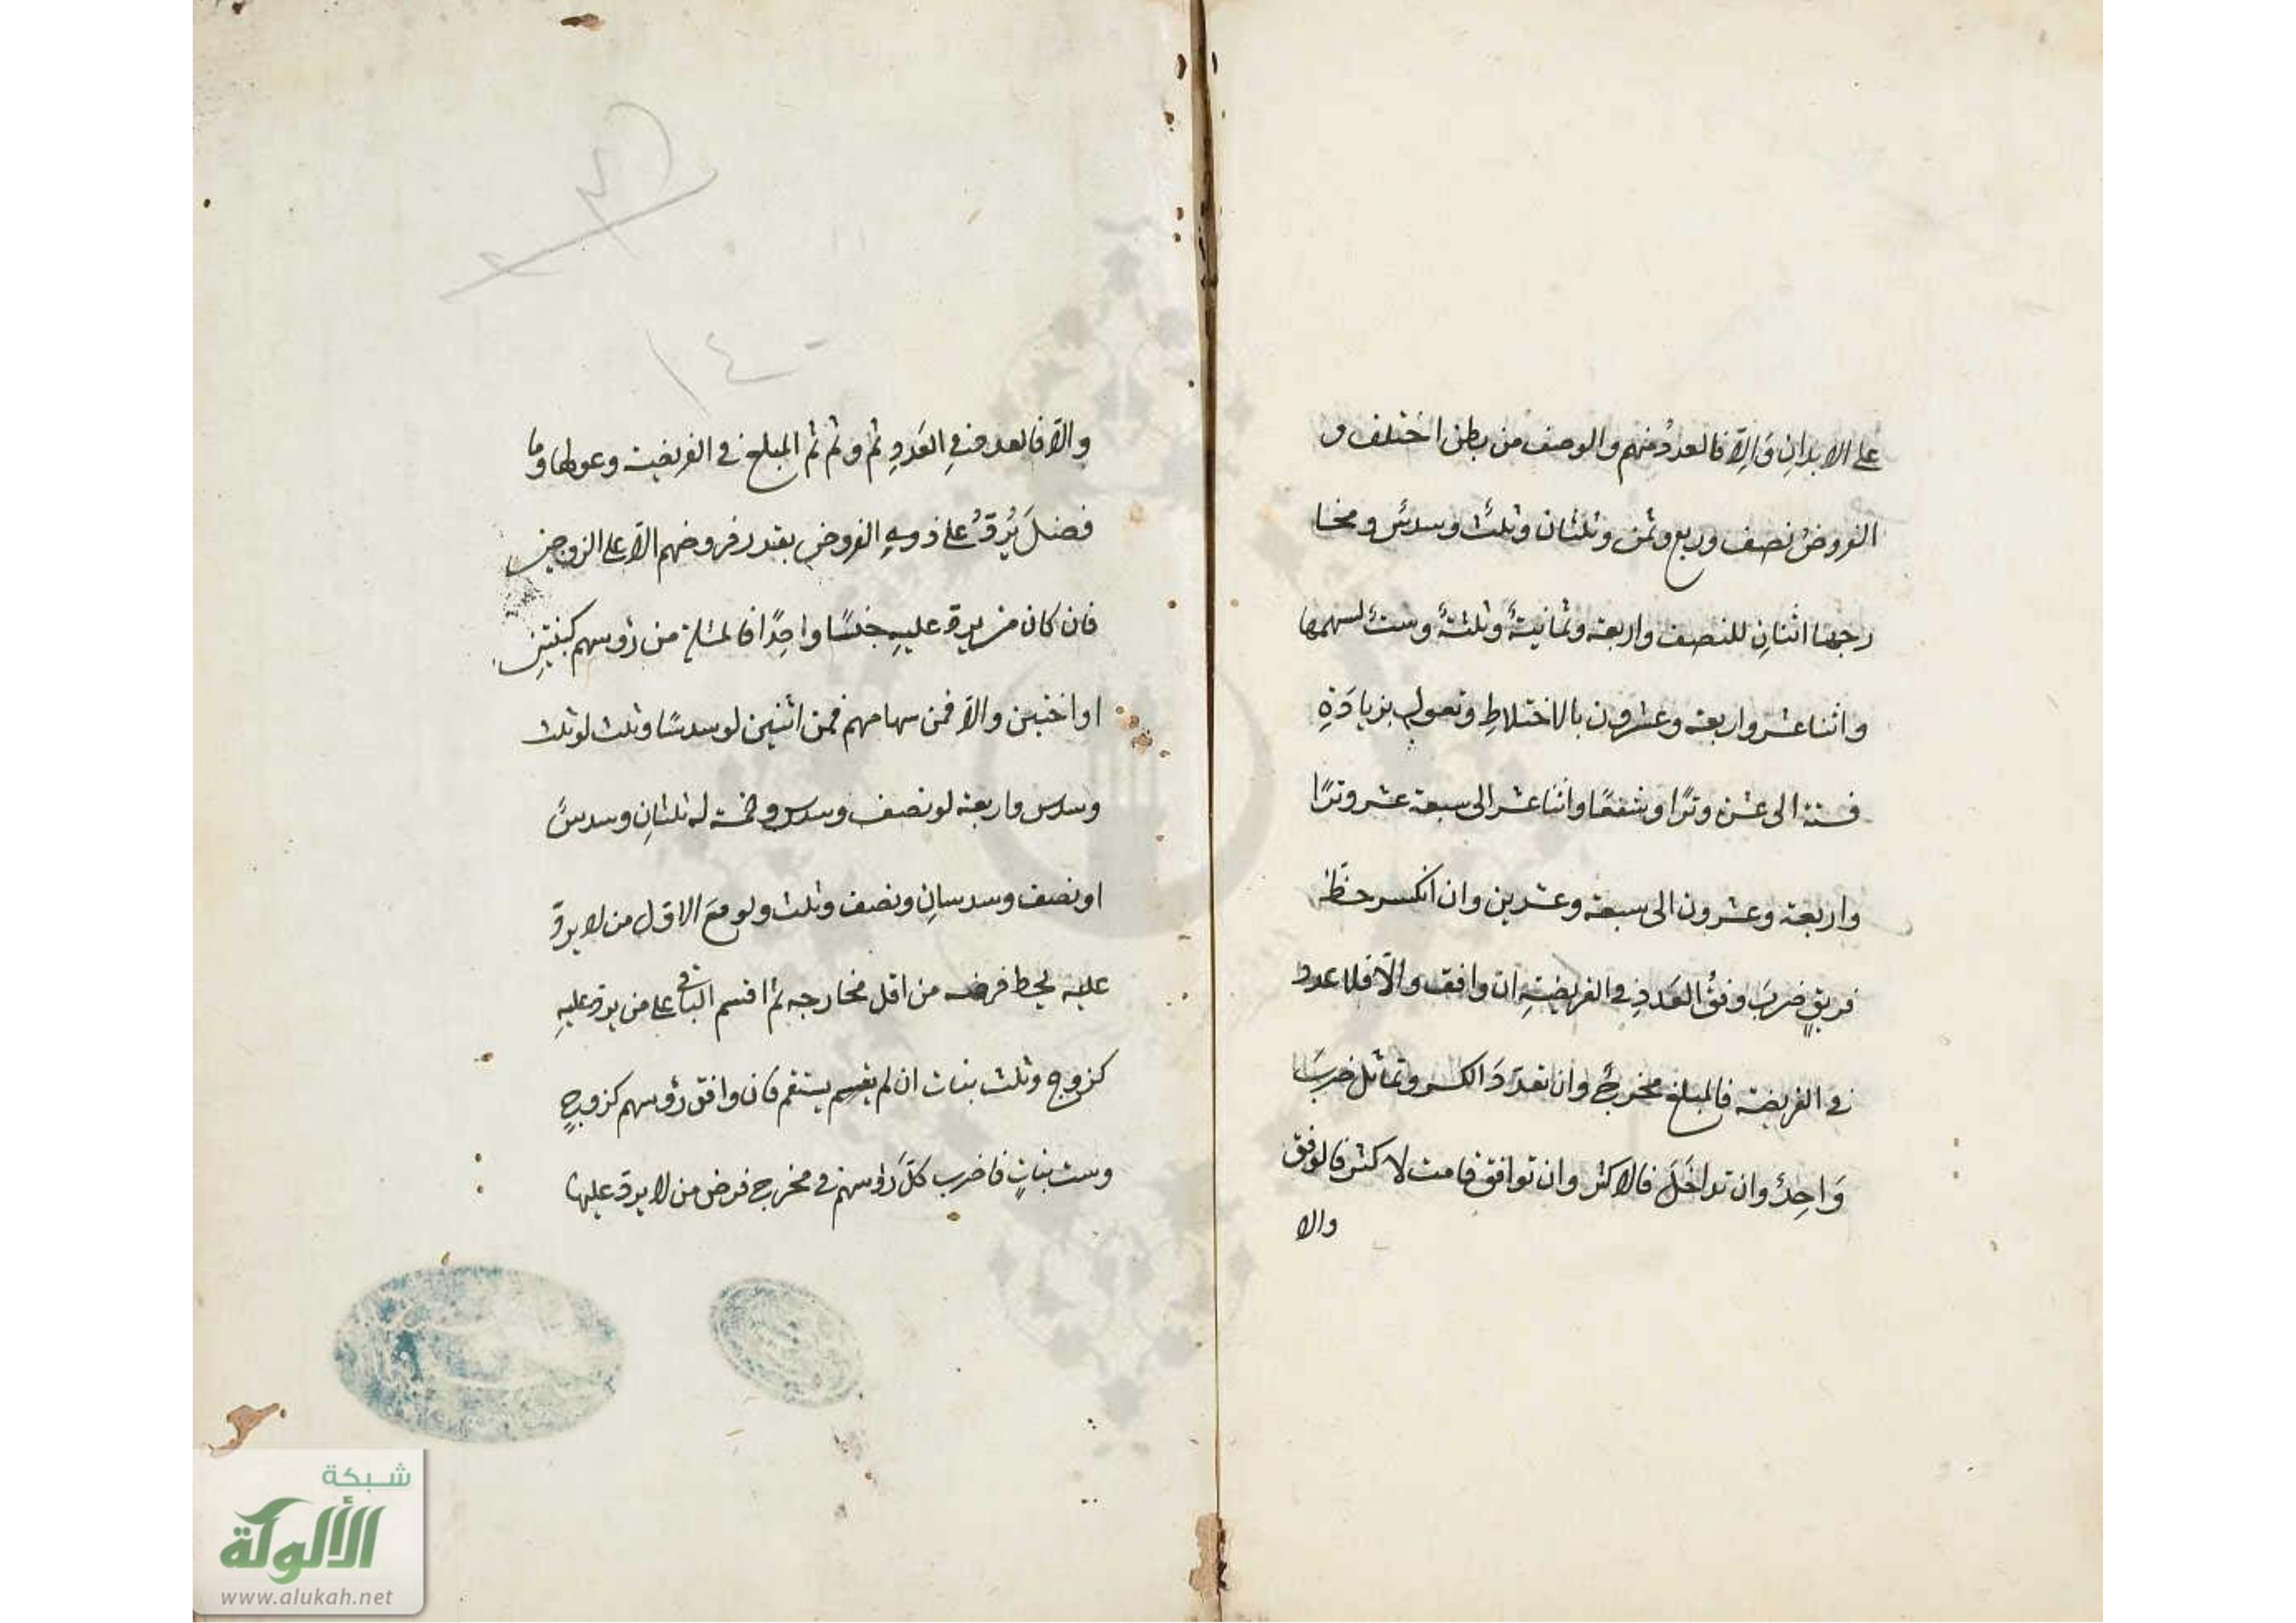 على الابدانِ وَالِّا فالعددُ منهم والوصف من بطن اختلف و
الفروضُ نصف وربع وثمن وثلثان وثلثٌ وسدسٌ ومخا
رجها اثنانِ للنصف واربعة وثمانيةٌ وثلثةٌ وستةٌ لسهمها
واثنا عشر واربعة وعشرون بالاختلاطِ وتعول بزيادَةِ
فستة الى عشرة وترًا وشفعًا واثنا عشر الى سبعة عشر وترًا
واربعة وعشرون الى سبعة وعشرين وان انكسر حظّ
فريقٍ ضربَ وفقُ العَددِ في الفريضةِ ان وافق والّا فلا عدد
في الفريضة فالمبلغ مخرجٌ وان تعدّدَ الكسر وتماثل ضربَ
وَاحِدٌ وان تداخَلَ فالاكثر وان توافق فا لاكثر فالوفق
والا
والّا فالعدد في العَددِ ثم وثم ثم المبلغ في الفريضة وعولها وما
فضلَ يُردُّ على ذوي الفروض بقدر فروضهم الّا على الزوجين
فان كان من يرد عليهِ جنسًا واحِدًا فالمسئلة من رؤسهم كبنتينِ
او اختين والّا فمن سهامهم فمن اثنين لو سدسًا وثلث لو ثلث
وسدس واربعة لو نصف وسدس وخمسة لو ثلثانِ وسدسٌ
او نصف وسدسانِ ونصف وثلث ولو معَ الاوّل من لا يردّ
عليه يحط فرضه من اقل مخارجه ثم اقسم الباقي على من يرد عليهِ
كزوج وثلث بنات ان لم يقسم يستقم فان وافق رؤسهم كزوجٍ
وست بناتٍ فاضرب كلّ رؤسهم في مخرج فرض من لا يرد عليها
١٤٠
شبكة
الألوكة
www.alukah.net